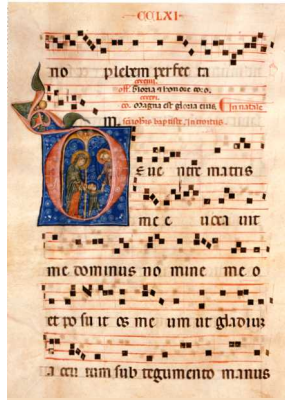 CCLXI
no plebem per fec ta
off. Gloria & honore co. o.
co. Magna est gloria eius. In natale
m. sci iohis baptiste. In introitu.
E ue ntre matris
me e uoca uit
me dominus no mine me o
et po su it os me um ut gladium
a cu tum sub tegumento manus